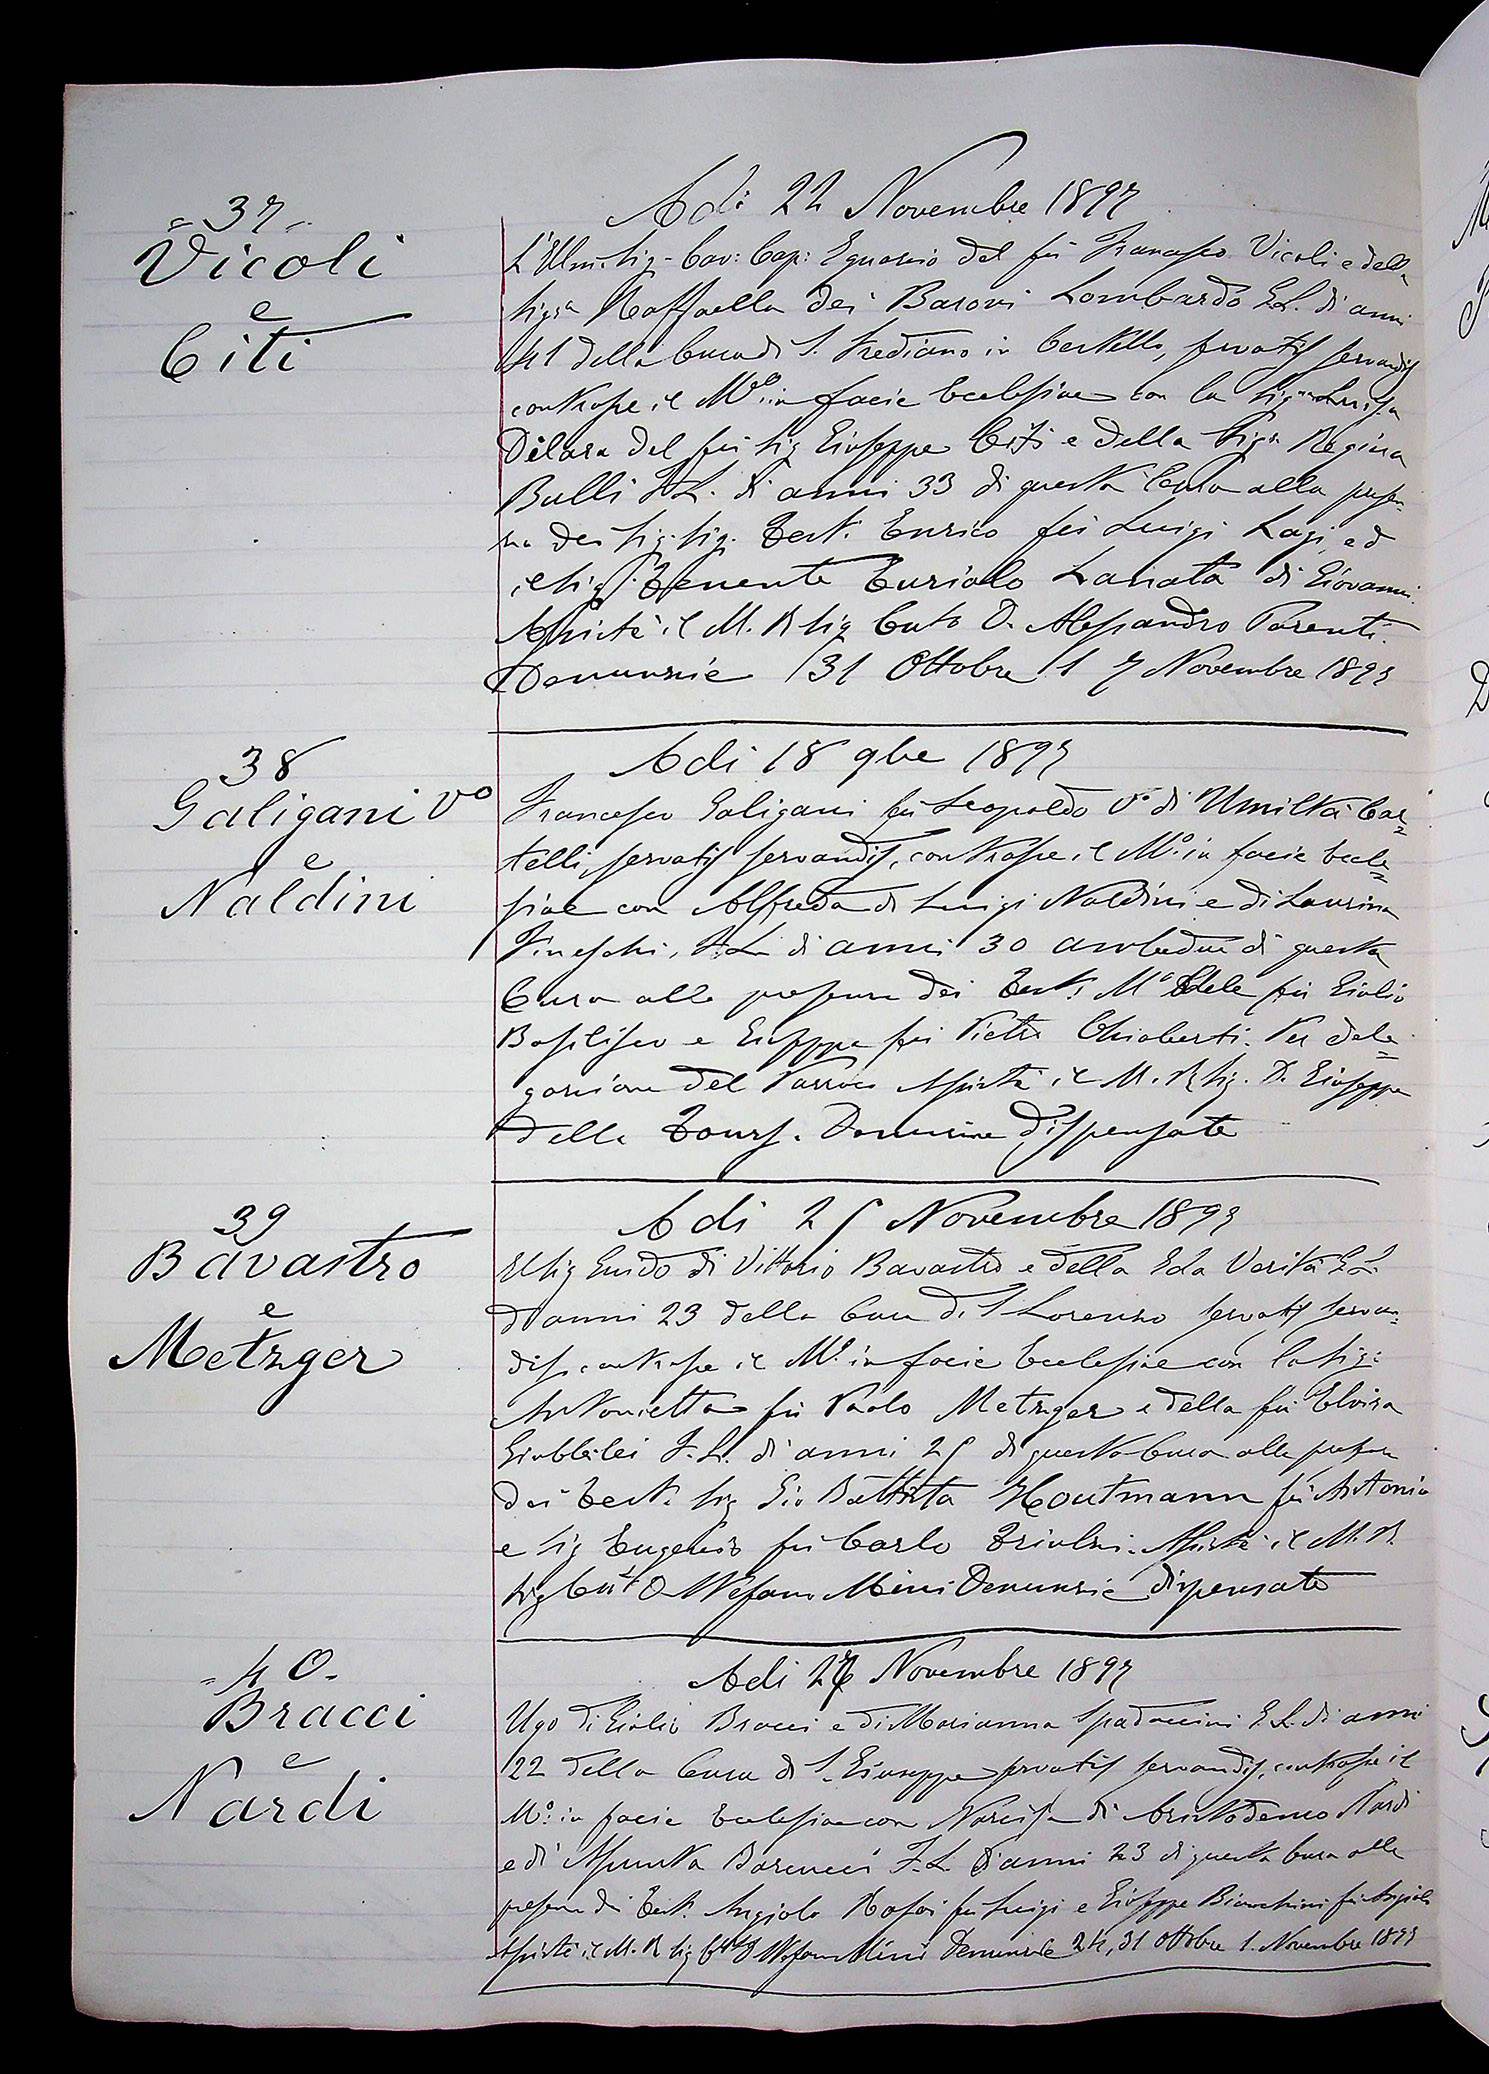 37
Vicoli
e
Citi
Adi 22 Novembre 1897
L'Illmo Sig. Cav: Cap: Eguasio del fù Francesco Vicoli e della
Sigra Raffaella dei Baroni Lombardo G.L. di anni
41 della Cura di S. Frediano in Cestello, servatis servandis
contrasse il Mo in facie Ecclesiae con la Sigra Luisa
del fù Sig Giuseppe Citi e della Sigra Regina
Bulli F.L. di anni 33 di questa Cura alla presen
za dei Sig. Sig. Test. Enrico fù Luigi Lagi ed
il Sig. Tenente Eurialo Lanata di Giovanni.
Assistè il M. R Sig Curto D. Alessandro Parenti.
Denunzie 31 Ottobre 1 7 Novembre 1897
38
Galigani Vo
e
Naldini
Adi 18 9bre 1897
Francesco Galigani fù Leopoldo Vo di Umiltà Car=
telli, servatis servandis, contrasse il Mo in facie Eccle=
siae con Alfreda di Luigi Naldini e di Laurina
Fineschi, F.L. di anni 30 ambedue di questa
Cura alla presenza dei Test. Mo Edele fù Giulio
Basilisco e Giuseppe fù Pietro Chioberti. Per dele=
gazione del Parroco Assistè il M. R Sig. D. Giuseppe
della Tours. Denunzie dispensate
39
Bavastro
e
Metzger
Adi 25 Novembre 1897
Il Sig Guido di Vittorio Bavastro e della Ida Verità G.L.
di anni 23 della Cura di S Lorenzo servatis servan=
dis, contrasse il Mo in facie Ecclesiae con la Sig:
Antonietta fù Paolo Metzger e della fù Elvira
Giubbilei F.L. di anni 25 di questa Cura alla presenza
dei Test. Sig Gio Battista Houtmann fù Antonio
e Sig Eugenio fù Carlo Triulzi. Assistè il M. R.
Sig Curto D Stefano Mini Denunzie dispensate
40
Bracci
e
Nardi
Adi 27 Novembre 1897
Ugo di Giulio Bracci e di Marianna Spadaccini G.L. di anni
22 della Cura di S. Giuseppe servatis servandis, contrasse il
Mo: in facie Ecclesiae con Narcisa di Aristodemo Nardi
e di Assunta Barucci F.L. di anni 23 di questa Cura alla
presenza dei Test. Angiolo Rossi fù Luigi e Giuseppe Bianchini fù Angiolo
Assistè il M. R Sig Curto D Stefano Mini Denunzie 24, 31 Ottobre 1. Novembre 1897